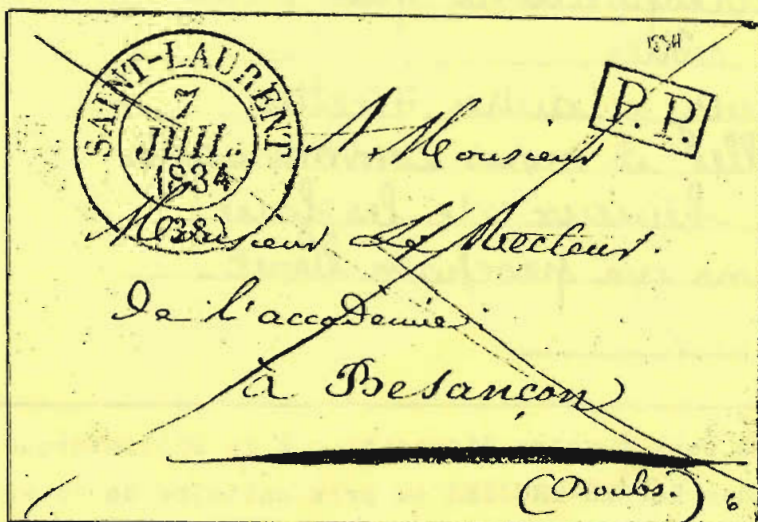 SAINT-LAURENT
7
JUIL.
1834
(38)
1834
P.P.
A Monsieur
Monsieur Le Recteur
De l'accademie
à Besançon
(Doubs)
6